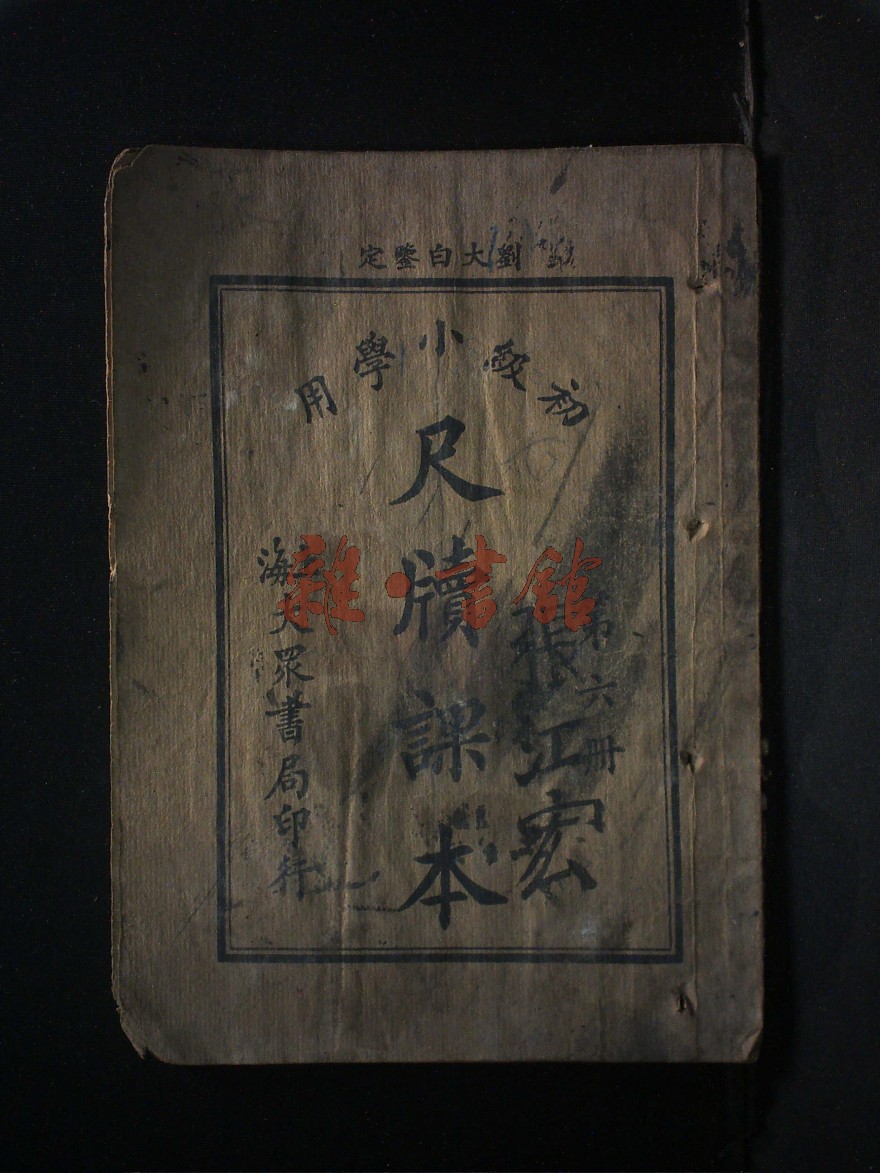 劉大白鑒定
初級小學用
尺牘課本
第六冊
張江宏
上海大眾書局印行
雜·書館